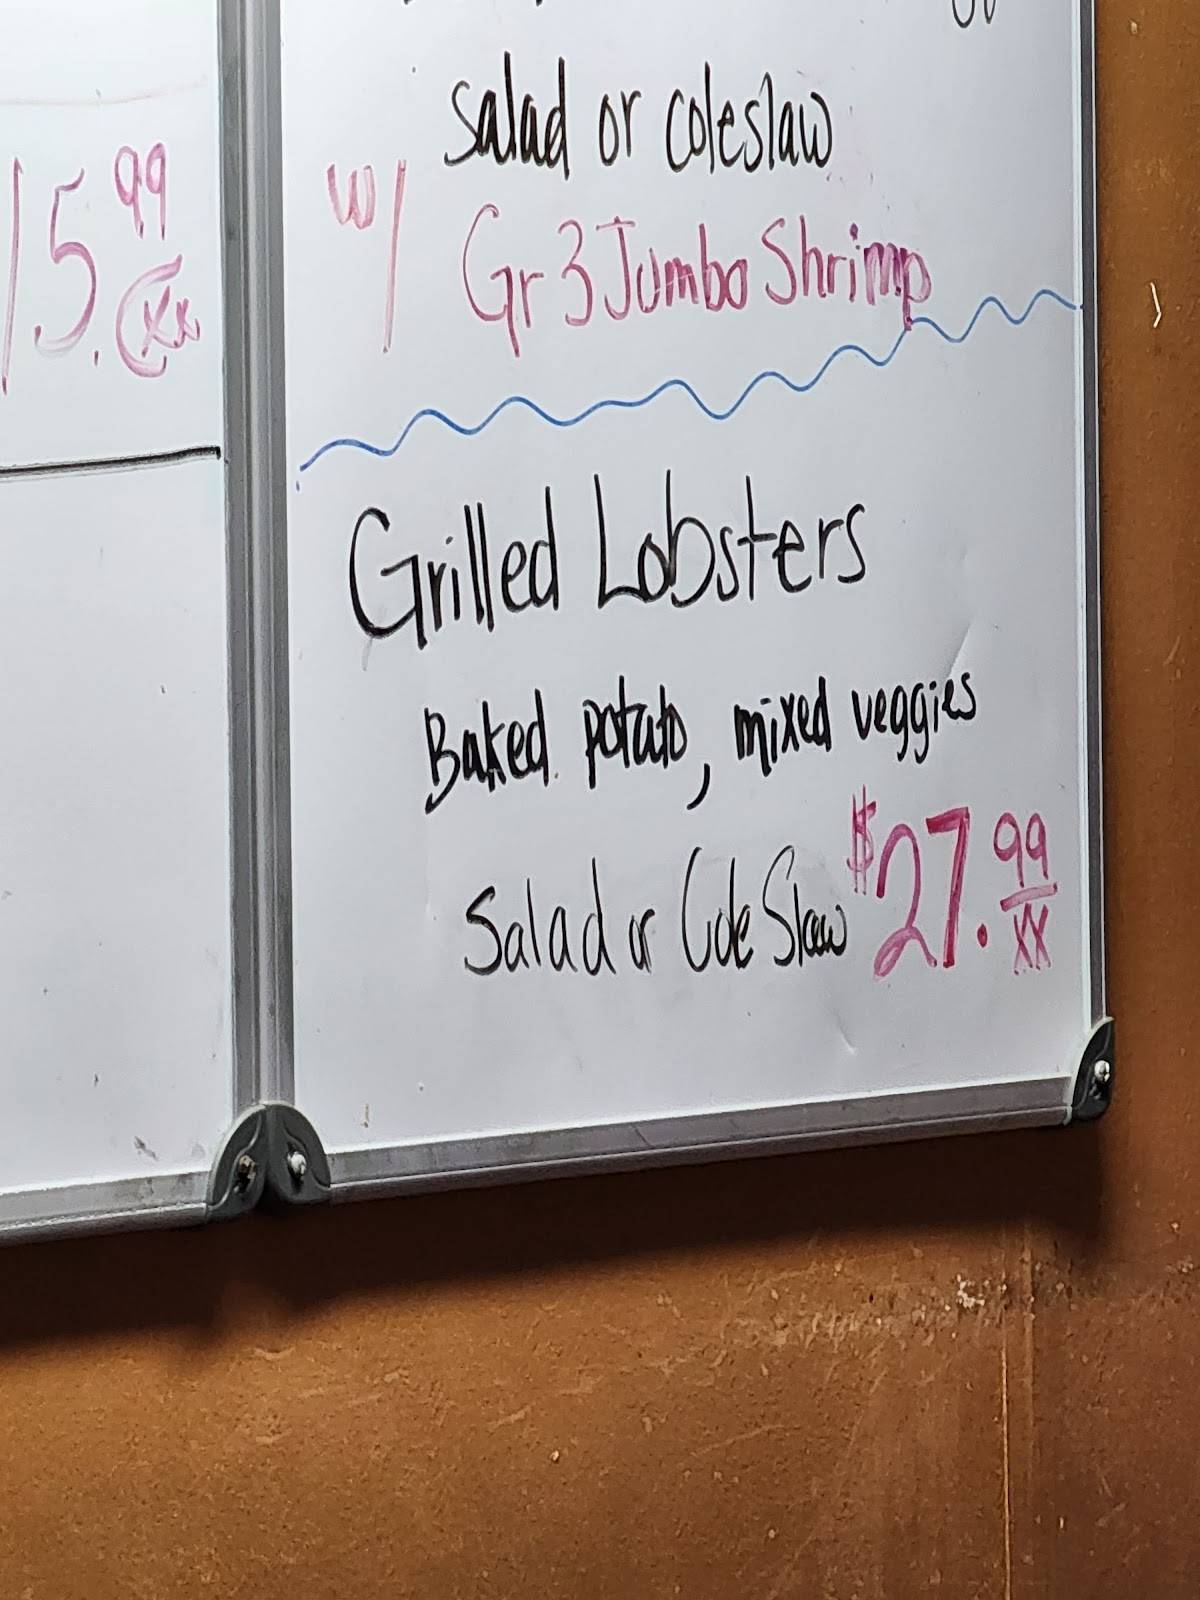 15.99
xx
salad or coleslaw
w/ Gr 3 Jumbo Shrimp
Grilled Lobsters
Baked potato, mixed veggies
Salad or Cole Slaw $27.99
xx